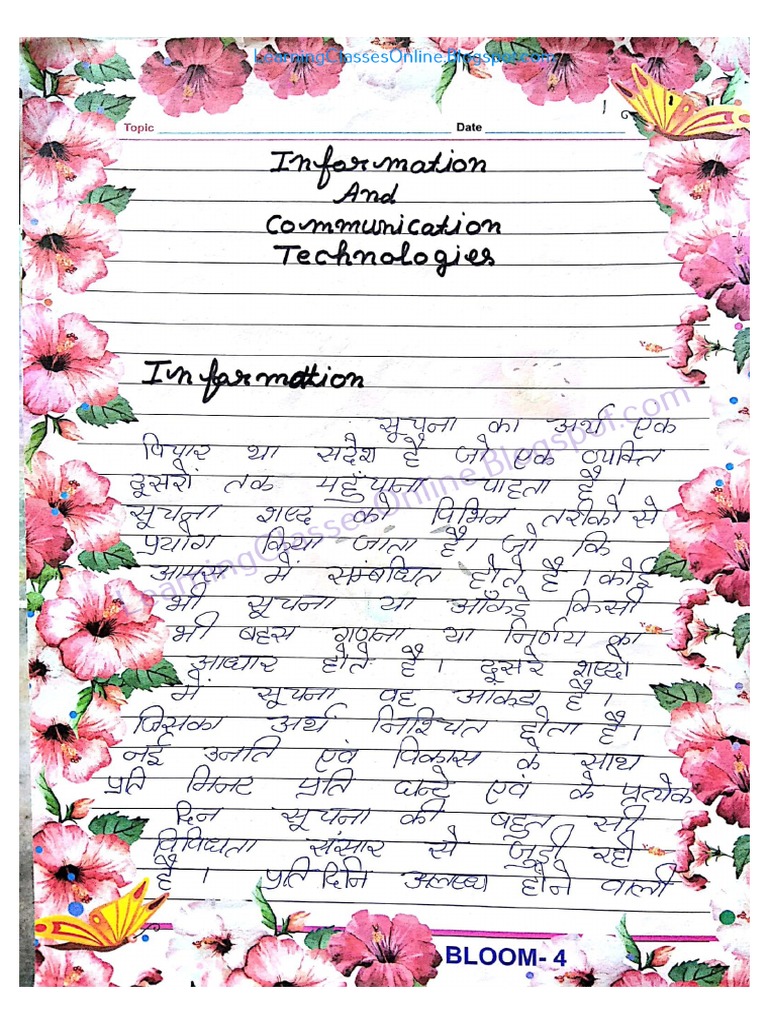 LearningClassesOnline.Blogspot.com
1
Topic Date
Information
And
Communication
Technologies
Information
सूचना का अर्थ एक
विचार या संदेश है जो एक व्यक्ति
दूसरों तक पहुंचाना चाहता है।
सूचना शब्द को विभिन तरीको से
प्रयोग किया जाता है। जो कि
आपस में सम्बधित होते है। कोई
भी सूचना या आँकडे किसी
भी बहस गणना या निर्णय का
आधार होते है। दूसरे शब्दो
में सूचना वह आकडा है।
जिसका अर्थ निश्चित होता है।
नई उनति एवं विकास के साथ
प्रति मिनट प्रति घन्टे एवं के प्रत्येक
दिन सूचना की बहुत सी
विविधता संसार से जुडी रही
है। प्रतिदिन होने वाली
BLOOM- 4
LearningClassesOnline.Blogspot.com